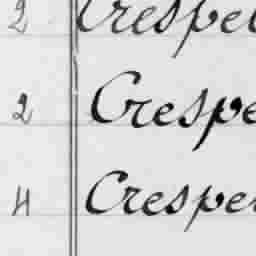 2 Crespe
2 Crespe
4 Crespe